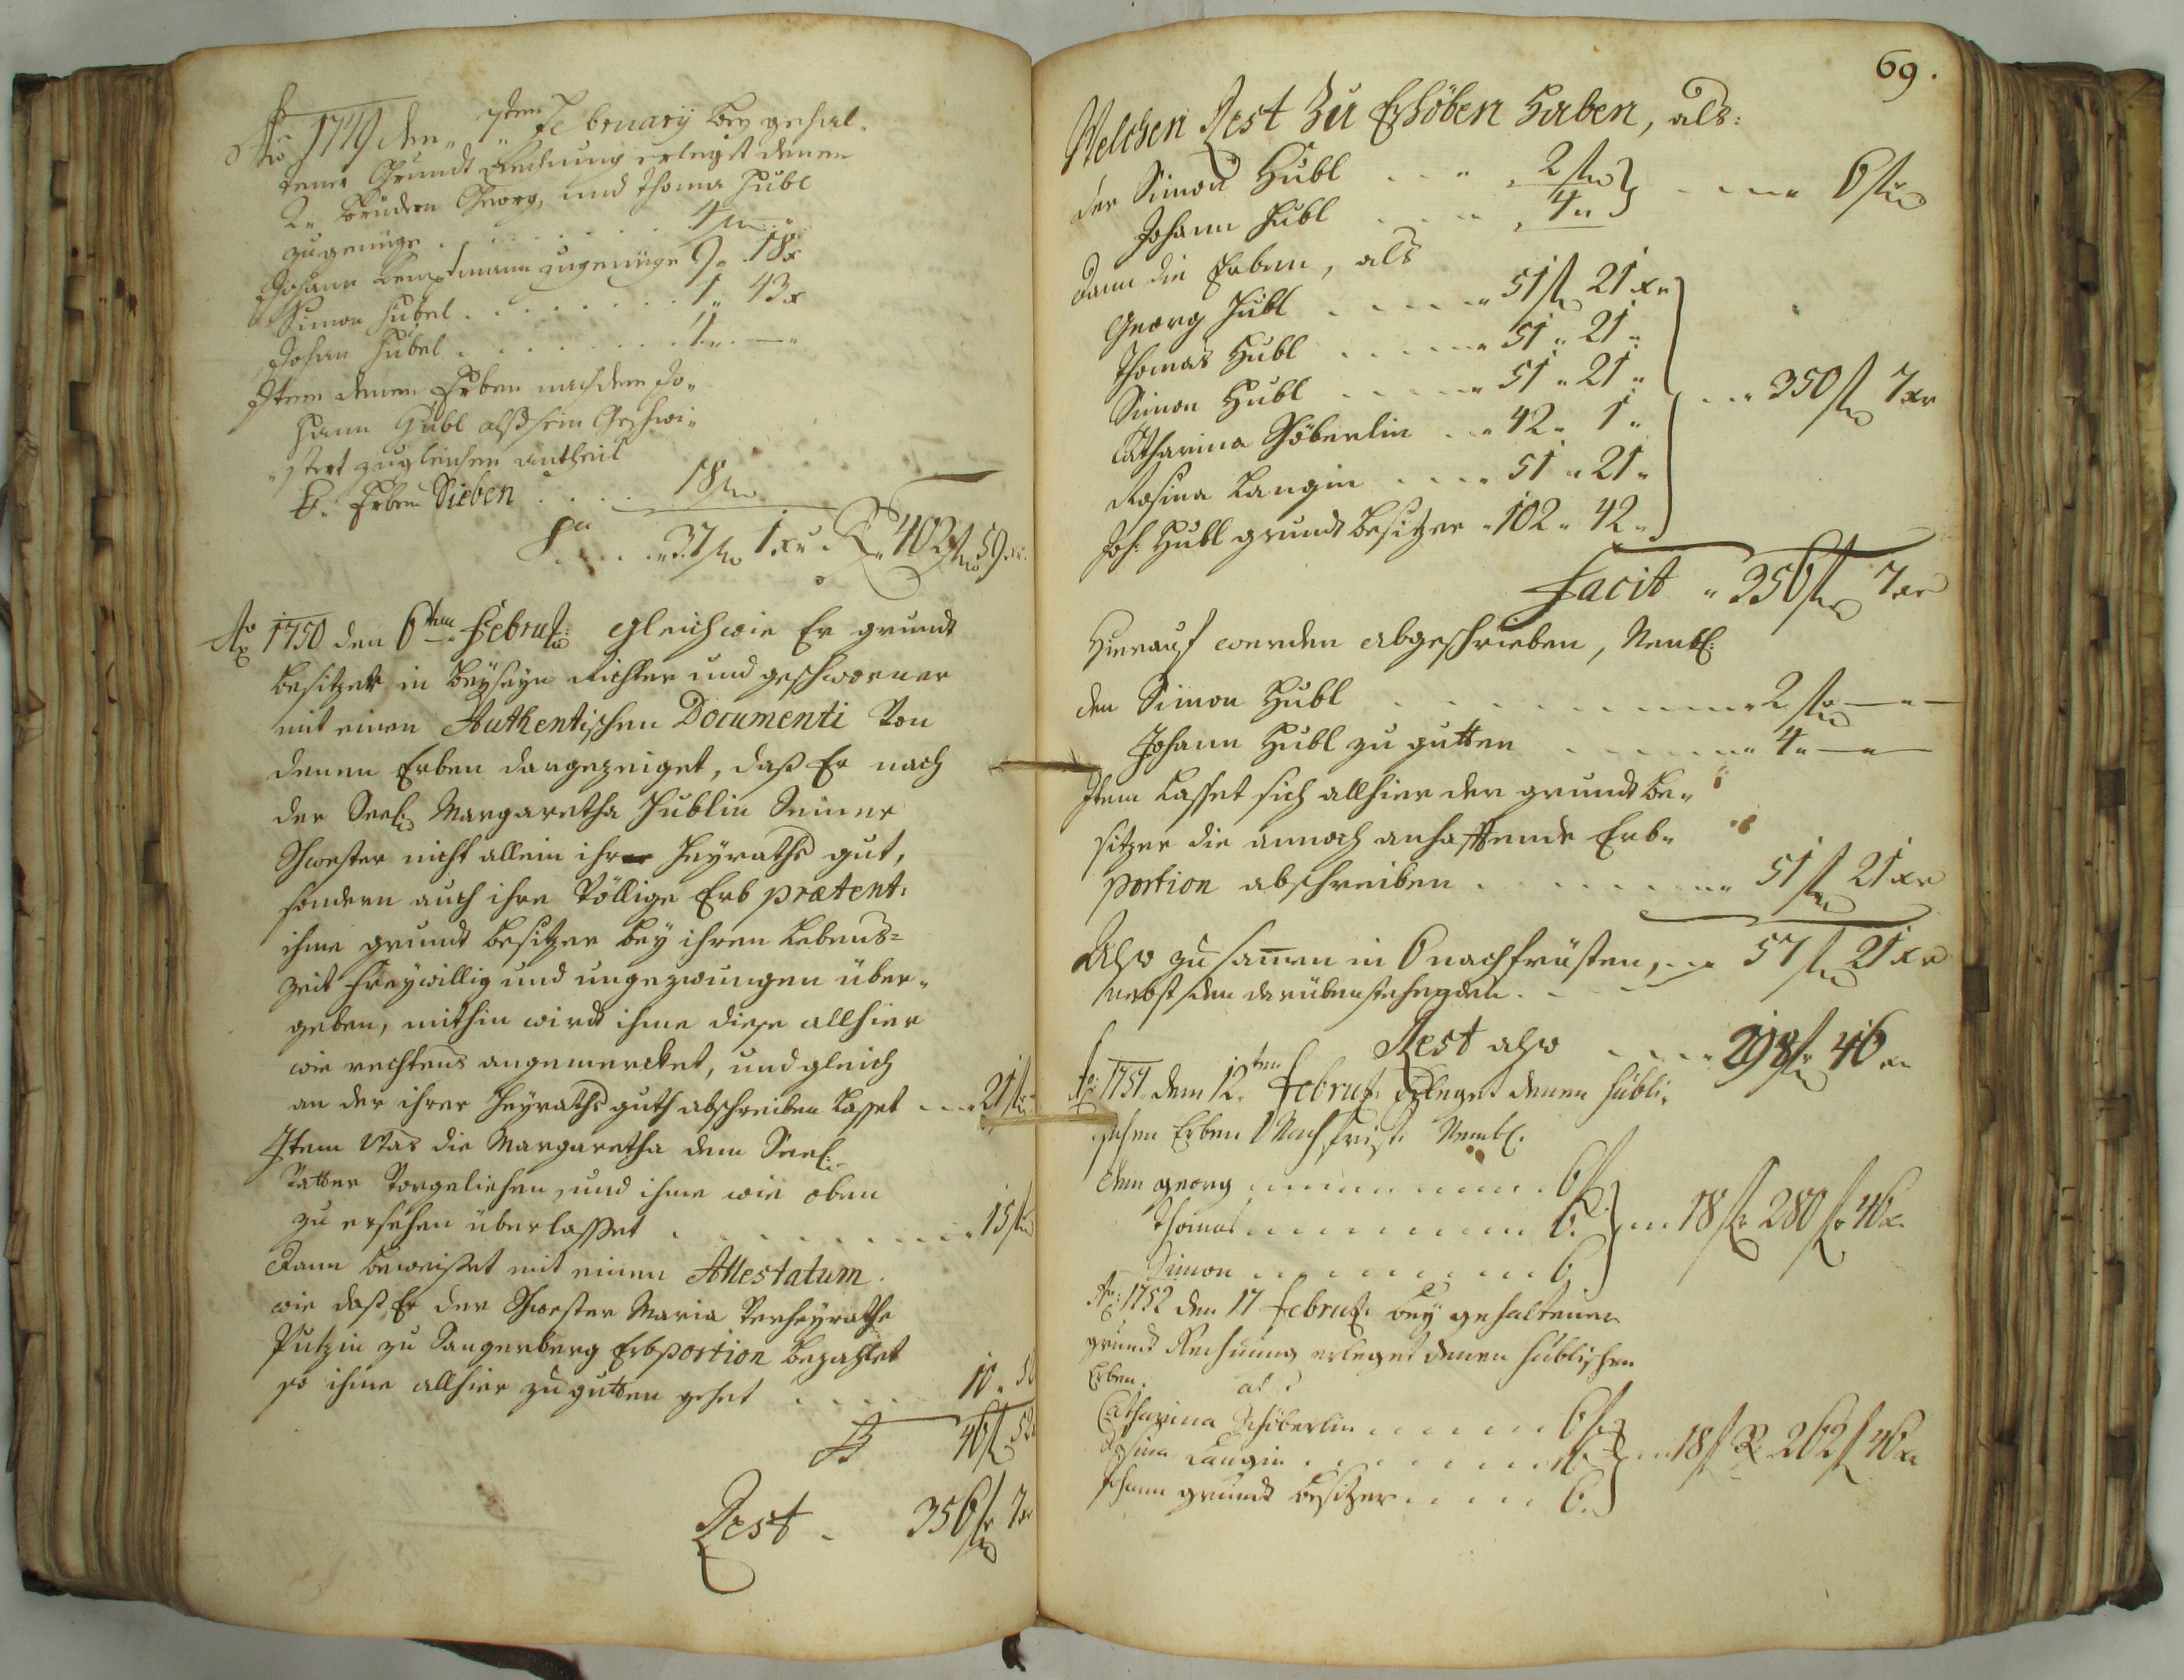 Ao 1749 den 7ten February bey gehal„
tener Grundt Rechnung erlegt denen
2„ Brüdern Georg, und Thoma Hübl
zugenüge . . . . . . . 4 fl „
Johann zugenüge 9„ 18x
Simon Hübel . . . . . . . 1„ 43x
Johan Hübel . . . . . . . 1„ —„
Item denen Erben nach dem Jo„
hann Hübl alß sein Geschwi„
stert zu gleichen antheil
Erben Sieben . . . . 18 fl
Sa . . . „ 37 fl 1 xr R„ 402 fl 59 xr
Ao 1750 den 6ten Februar: Gleich wie Er grundt
besitzer in beyseyn Richter und geschworner
mit einen Authentischen Documenti Von
denen Erben dargezeiget, daß Er nach
der Seel: Margaretha Hüblin Seiner
Schwester nicht allein ihre Heyraths gut,
sondern auch ihre Völlige Erb prætent:
ihme grundt besitzer bey ihren Lebens=
zeit freywillig und ungezwungen über„
geben, mithin wirdt ihme diese allhier
wie rechtens angemercket, und gleich
an der ihrer Heyraths guth abschreiben lasset . . . 21 fl
Item Was die Margaretha dem Seel:
Vatter Vorgeliehen, und ihme wie oben
zu ersehen überlasset . . . . . . . . 15 fl
Dann beweiset mit einen Attestatum
wie daß Er der Schwester Maria Verheyrathe
Putzin zu Sangerberg Erbportion bezahlet
so ihme allhier zu gutten gehet . . . . 10 „ 5
46 fl 52
Rest . 356 fl 7 xr
69.
Welchen Rest Zu Erhöben Haben, als:
der Simon Hübl . . . 2 fl } . . . . 6 fl
Johann Hübl . . . . 4 „
dann die Erben, als
Georg Hübl . . . . . 51 fl 21 xr
Thomas Hübl . . . . . 51 „ 21 „
Simon Hübl . . . . . 51 „ 21 „
Catharina Schöberlin . . 42 „ 1 „ } . . . 350 fl 7 xr
Rosina Langin . . . . 51 „ 21 „
Joh: Hübl grundt besitzer „ 102 „ 42 „
Facit „ 356 fl 7 xr
Hierauf werden abgeschrieben, Nembl:
den Simon Hübl . . . . . . . . . 2 fl — „ —
Johann Hübl zu gutten . . . . . . 4 „ — „ —
Item Lasset sich allhier der grundt be„
sitzer die annoch anhaftende Erb„
portion abschreiben . . . . . . . . 51 fl 21 xr
Also zusamen in 6 nachfrüsten, . . . 57 fl 21 xr
nebst den darübenstehenden . . .
Rest also . . . . 298 fl 46 xr
Ao: 1751. dem 12.ten Februar: Erleget denen Hübli„
schen Erben 1 Nachfrist. Nembl:
dem georg . . . . . . . . . 6 fl
Thomas . . . . . . . . . 6. } . . . 18 fl 280 fl 46 x
Simon . . . . . . . . . 6
Ao: 1752 den 17 Februar: bey gehaltener
grundt Rechnung erleget denen Hüblischen
Erben. als
Catharina Schöberlin . . . . . . 6 fl
Rosina Langin . . . . . . . . 6 } . . . 18 fl R 262 fl 46 xr
Johann grundt besitzer . . . . . 6.